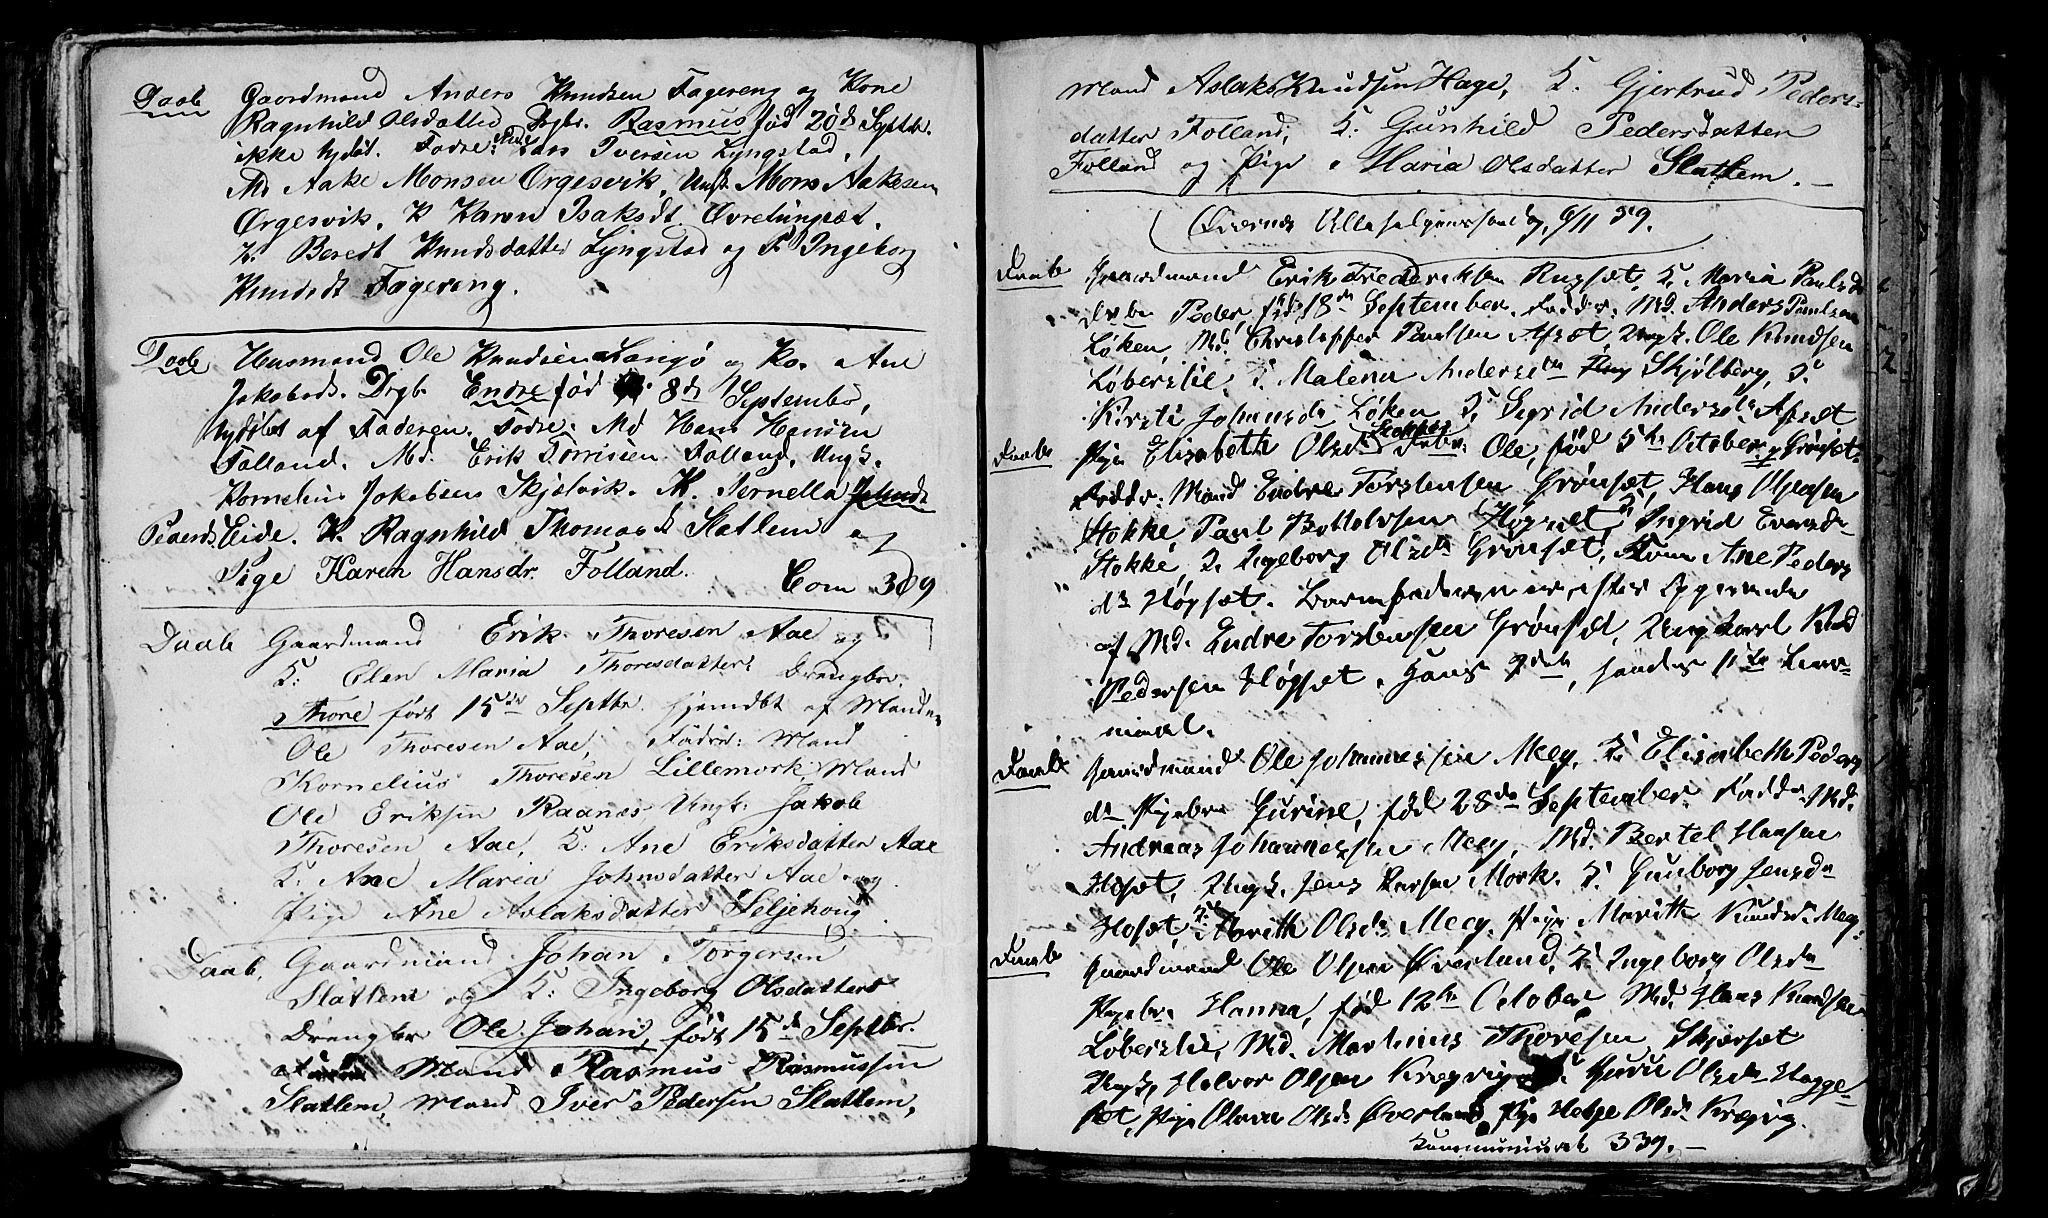 Daab Gaardmand Anders Knudsen Fagereng og Kone
Ragnhild Olsdatter Drgbr. Rasmus fød 20de Septbr.
ikke hjdøbt. Fadre: Md Lars Iversen Lyngstad,
Md Aake Monsen Ørgesvik, Ungk Mons Aakesen
Ørgesvik. K Karen Isaksdt
K. Beredt Knudsdatter Lyngstad og P. Ingeborg
Knudsdt Fagereng.
Daab Husmand Ole Knudsen Langø og Ko. Ane
Jakobsd. Drgb. Endre fød 8de September,
hjdøbt af Faderen. Fadre: Md Hans Hansen
Folland. Md. Erik Torrissen Folland. Ungk.
Kornelius Jakobsen Skjelvik. K. Pernella
Pedersd Eide. K. Ragnhild Thomasdt Slatlem og
Pige Karen Hansdr. Folland. Com 309
Daab Gaardmand Erik Thoresen Aae og
K: Elen Maria Thoresdatters Drengbr.
Thore født 15de Septbr. hjemdbt af Manden
Ole Thoresen Aae, Fadre: Mand
Kornelius Thoresen Lillemork, Mand
Ole Eriksen Raanes, Ungk. Jakob
Thoresen Aae, K: Ane Eriksdatter Aae
K. Ane Maria Johnsdatter Aae og
Pige Ane Aslaksdatter Seljehoug
Daab. Gaardmand Johan Torgersen
Slatlem og K: Ingeborg Olsdatters
Drengbr Ole Johan, født 15de Septbr.
Mand Rasmus Rasmussen
Slatlem, Mand Iver Pedersen Slatlem,
Mand Aslak Knudsen Hage, K. Gjertrud Peders-
datter Folland, K: Gunhild Pedersdatter
Folland og Pige Maria Olsdatter Slatlem. —
Qværnæs Allehelgenssøndag, 6/11 59.
Daab Gaardmand Erik Frederiksen Rugset, K. Maria Paulsdr
Drbn Peder, fød 18de September. Faddr. Md. Anders Paulsen
Løken, Md. Christopher Paulsen Afset, Ungk. Ole Knudsen
Løberslie, K. Malena Andersdr Skjølberg, K.
Kirsti Johansdr Løken, K. Sigrid Andersdr Afset
Daab Pige Elisabeth Olsdr Drbn. Ole, fød 5te October, Grønset.
Faddr. Mand Endre Torstensen Grønset, Hans Olsen
Stokke, Paul Bottolvsen Høgset, K. Ingrid Eversdr
Stokke, K. Ingeborg Olsdr Grønset, Kone Ane Peders
dr Høgset. Barnefaderen er efter Opgivende
af Md. Endre Torstensen Grønset, Ungkarl Knud
Pedersen Høgset. Hans 2det, hendes 1ste Leier-
maal.
Daab Gaardmand Ole Johannessen Meeg, K. Elisabeth Peders
dr Pigebn Gurine, fød 28de September. Faddr. Md.
Andreas Johannessen Meeg, Md. Bertel Hansen
Hoset, Ungk. Jens Larsen Mork. K. Gunborg Jensdr
Hoset, K. Marith Olsdr Meeg. Pige Marith Knudsdr Meeg.
Daab Gaardmand Ole Olsen Øverland, K. Ingeborg Olsdr
Pigebn. Hanna, fød 12te October Md. Hans Knudsen
Løberslie, Md. Marthinus Thoresen Skjerset
Ungk, Halvor Olsen Krægvig, K. Guru Olsdr Hegge-
set, Pige Olava Olsdr Øverland, Pige Helge Olsdr Krægvig.
Kommunicerede 339. —